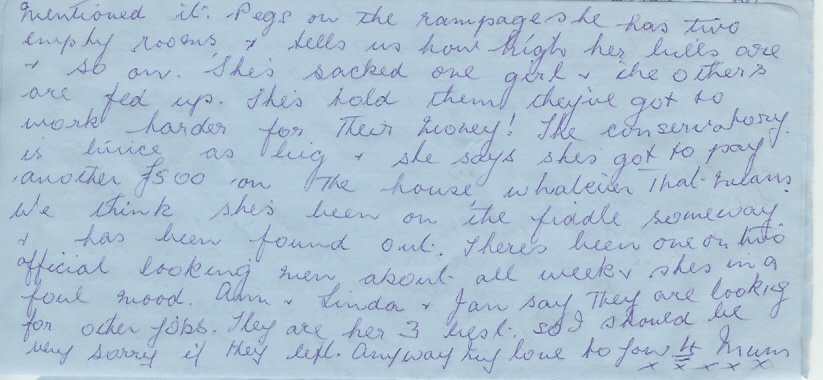 mentioned it. Pegs on the rampage she has two
empty rooms, & tells us how high her bills are
& so on. She's sacked one girl & the others
are fed up. She's told them they've got to
work harder for their money! The conservatory
is twice as big & she says she's got to pay
another £500 on the house, whatever that means.
We think she's been on the fiddle someway
& has been found out. There's been one or two
official looking men about all week & she's in a
foul mood. Ann & Linda & Jan say they are looking
for other jobs. They are her 3 best. so I should be
very sorry if they left. Anyway my love to you 4 Mum
x x x x x